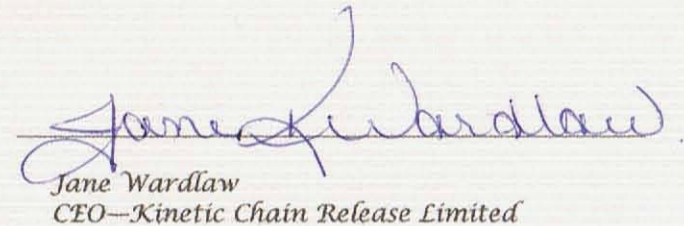 Jane K Wardlaw
Jane Wardlaw
CEO—Kinetic Chain Release Limited